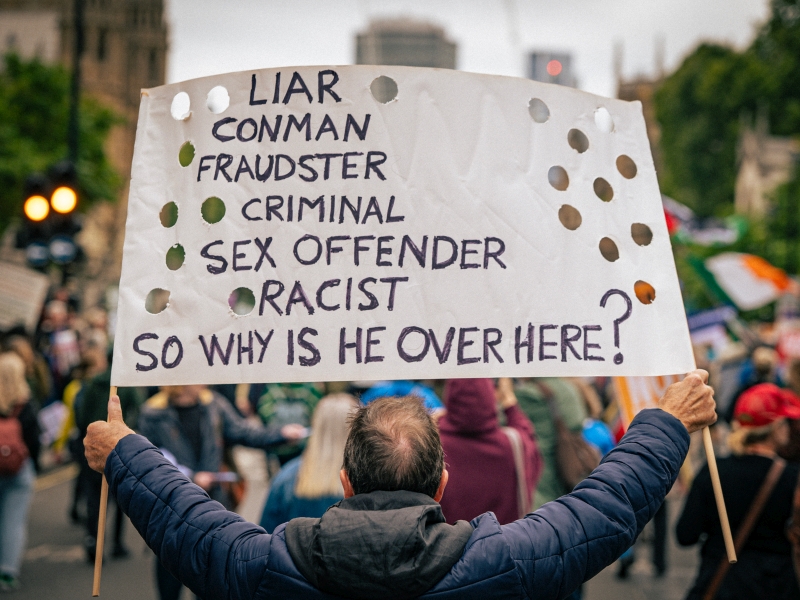 LIAR
CONMAN
FRAUDSTER
CRIMINAL
SEX OFFENDER
RACIST
SO WHY IS HE OVER HERE?